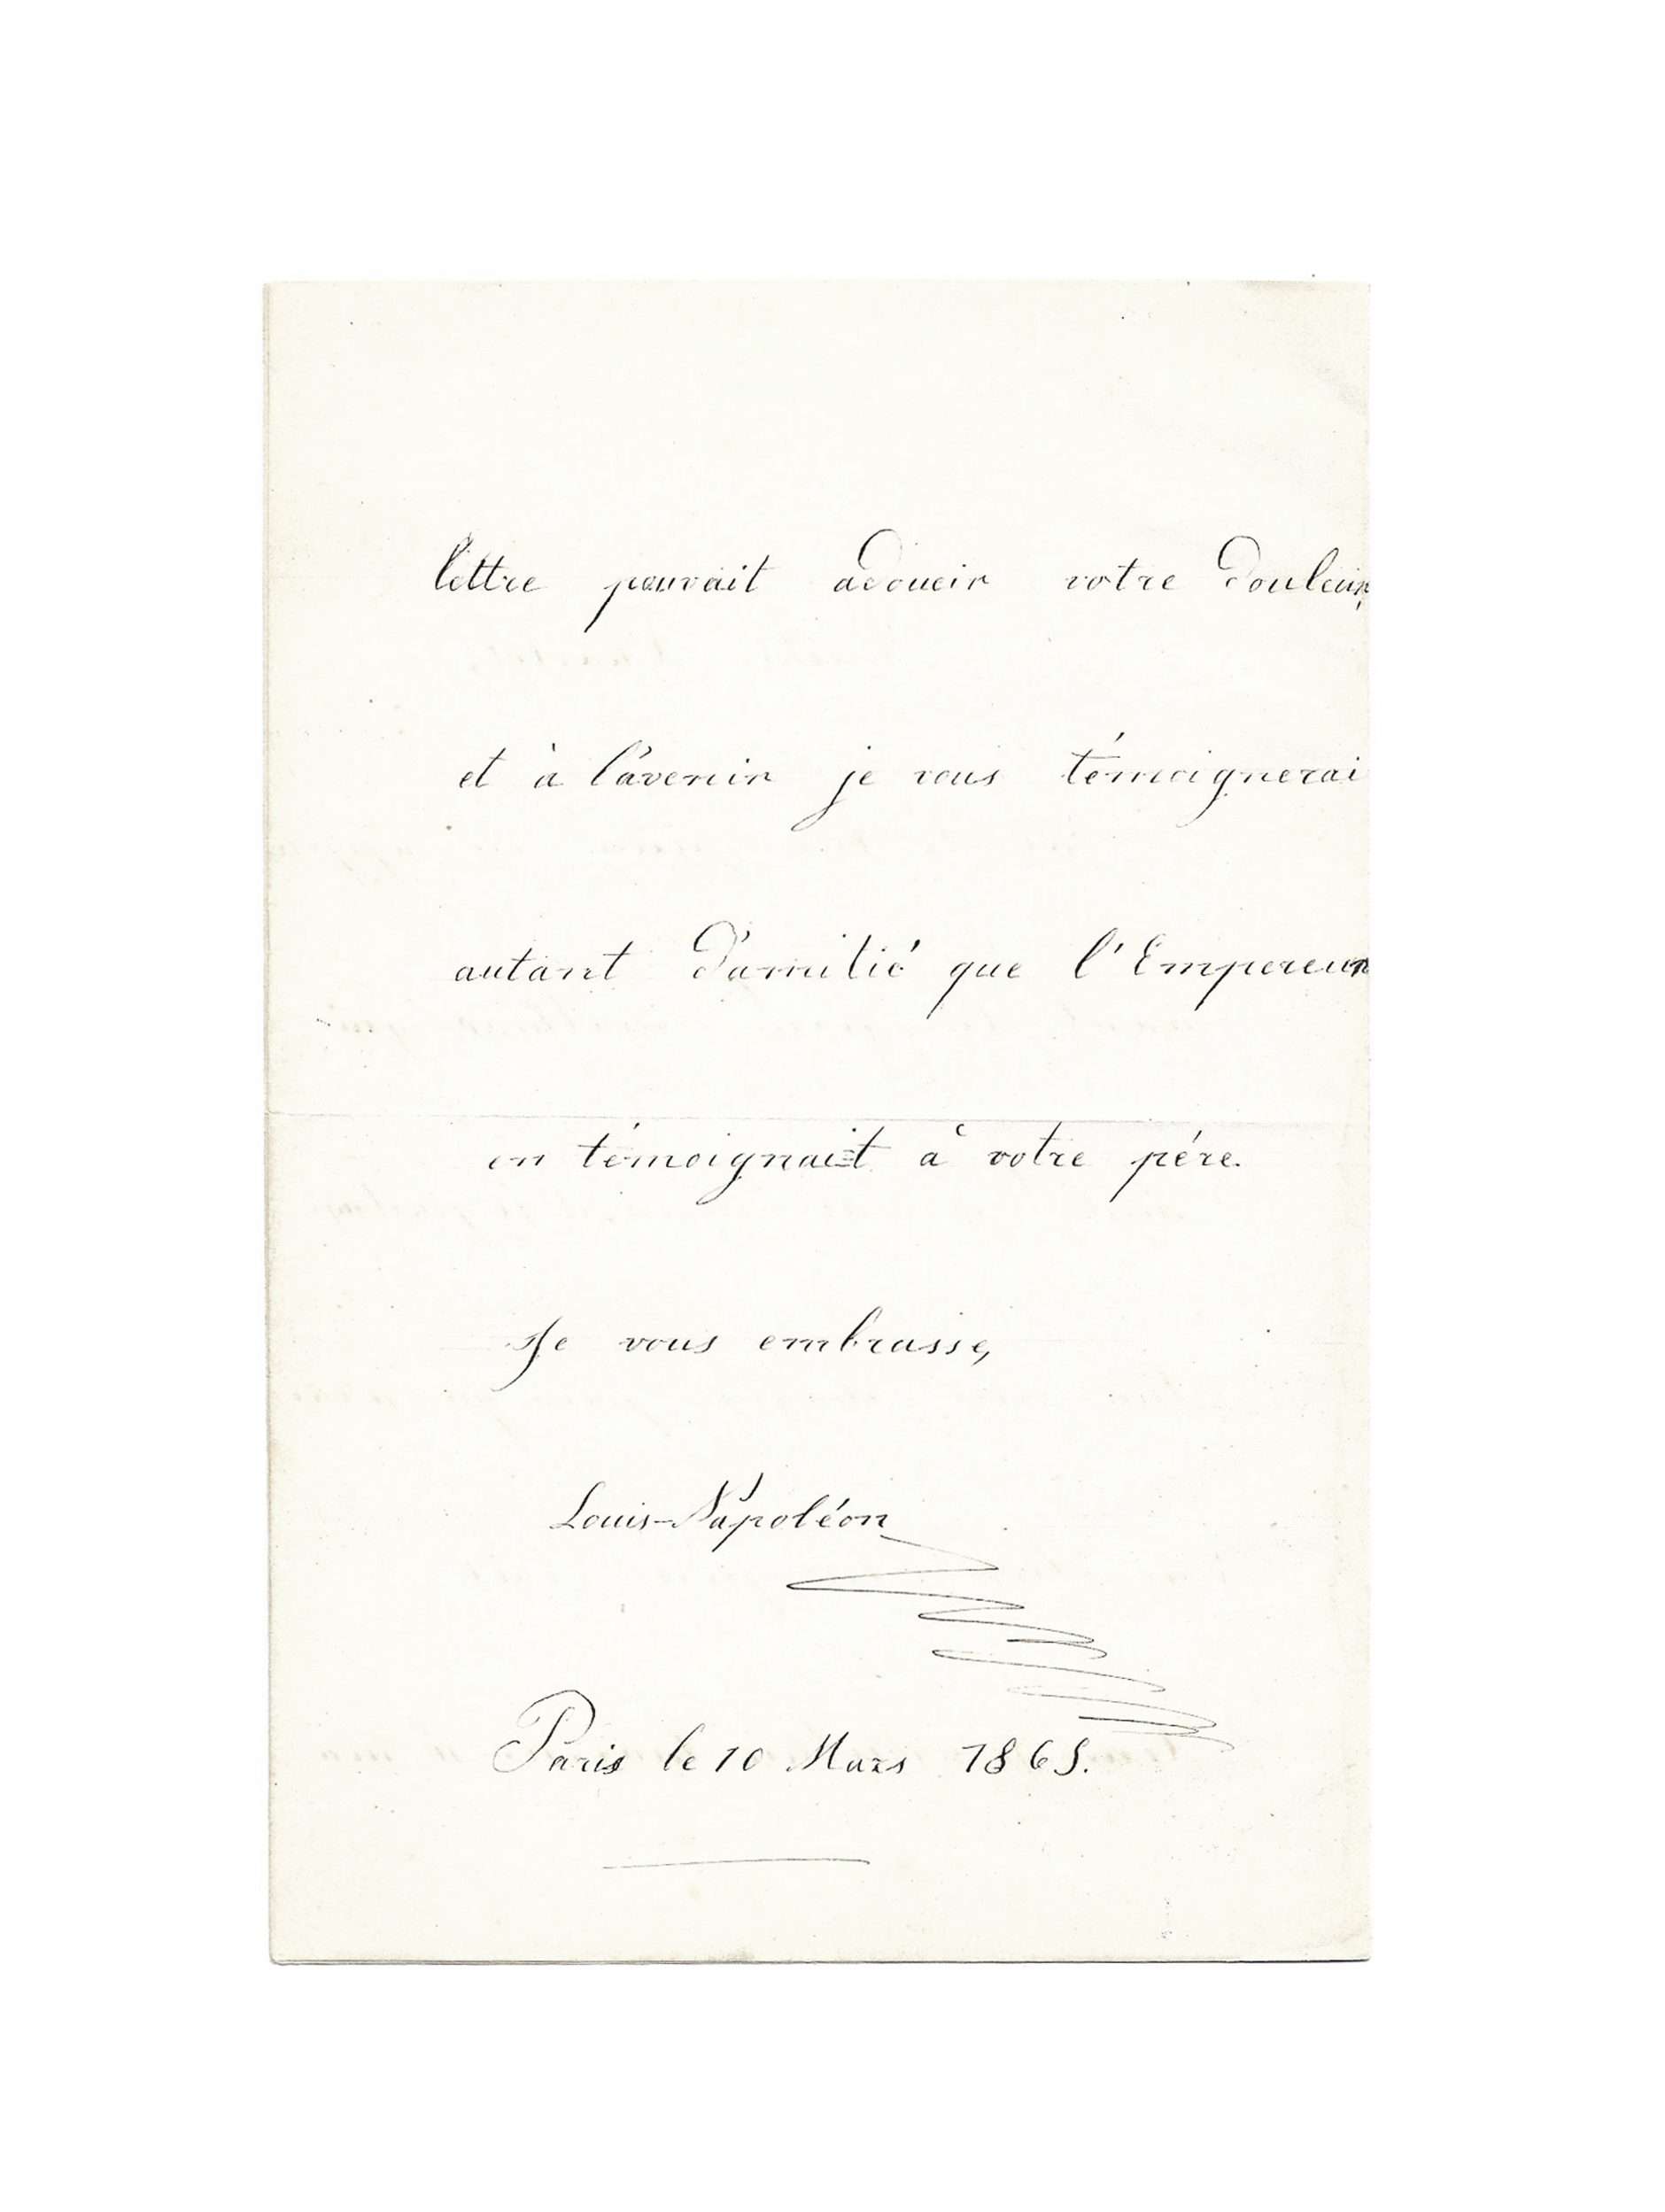 lettre pouvait adoucir votre douleur,
et à l'avenir je vous témoignerai
autant d'amitié que l'Empereur
en témoignait à votre père.
Je vous embrasse,
Louis-Napoléon
Paris le 10 Mars 1865.